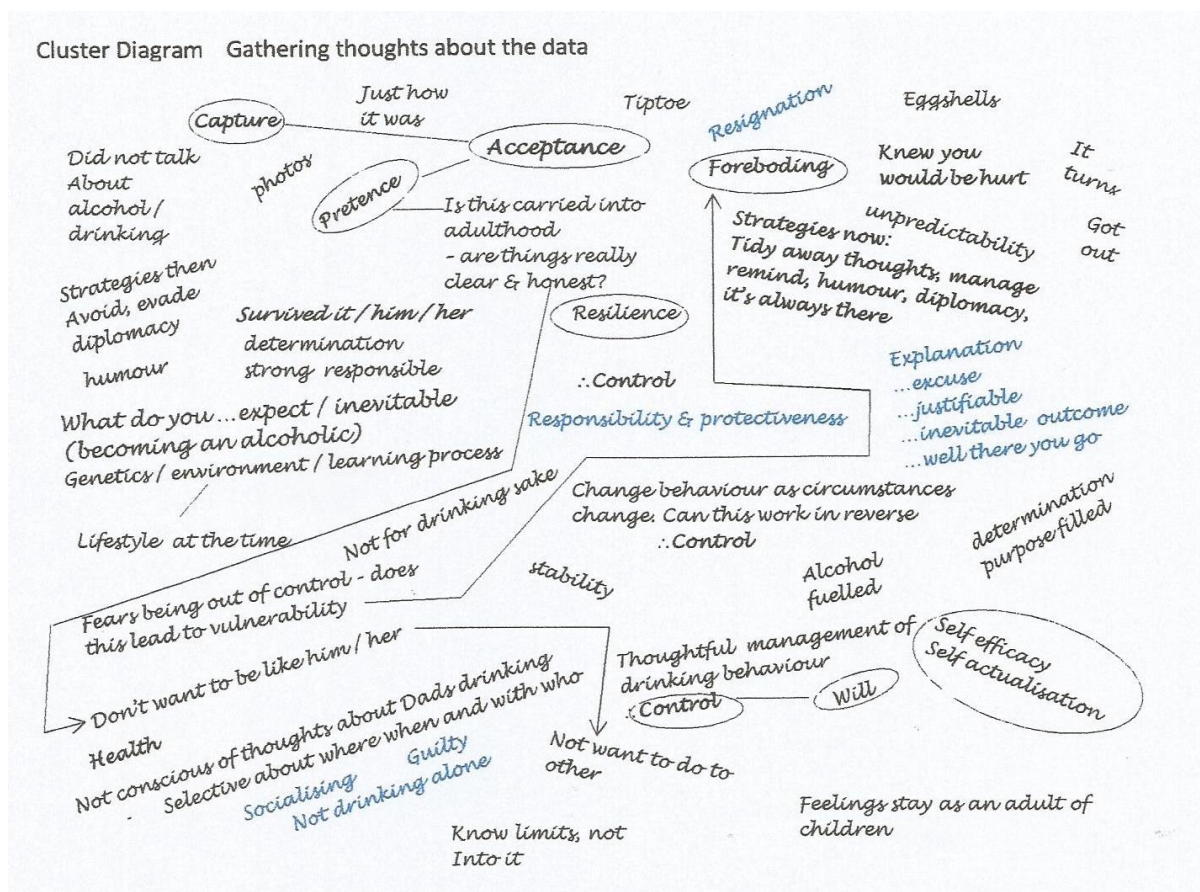 Cluster Diagram    Gathering thoughts about the data
Just how
it was
Capture
Tiptoe
Resignation
Eggshells
Acceptance
Did not talk
About
alcohol /
drinking
photos
Pretence
Foreboding
Knew you
would be hurt
It
turns
Is this carried into
adulthood
- are things really
clear & honest?
unpredictability
Got
out
Strategies now:
Tidy away thoughts, manage
remind, humour, diplomacy,
it's always there
Strategies then
Avoid, evade
diplomacy
humour
Survived it / him / her
determination
strong responsible
Resilience
∴Control
Explanation
...excuse
...justifiable
...inevitable outcome
...well there you go
What do you ...expect / inevitable
(becoming an alcoholic)
Genetics / environment / learning process
Responsibility & protectiveness
Lifestyle at the time
Not for drinking sake
Change behaviour as circumstances
change. Can this work in reverse
∴Control
determination
purpose filled
Fears being out of control - does
this lead to vulnerability
stability
Alcohol
fuelled
Don't want to be like him / her
Thoughtful management of
drinking behaviour
∴Control
Will
Self efficacy
Self actualisation
Health
Not conscious of thoughts about Dads drinking
Selective about where when and with who
Socialising
Guilty
Not drinking alone
Not want to do to
other
Know limits, not
Into it
Feelings stay as an adult of
children